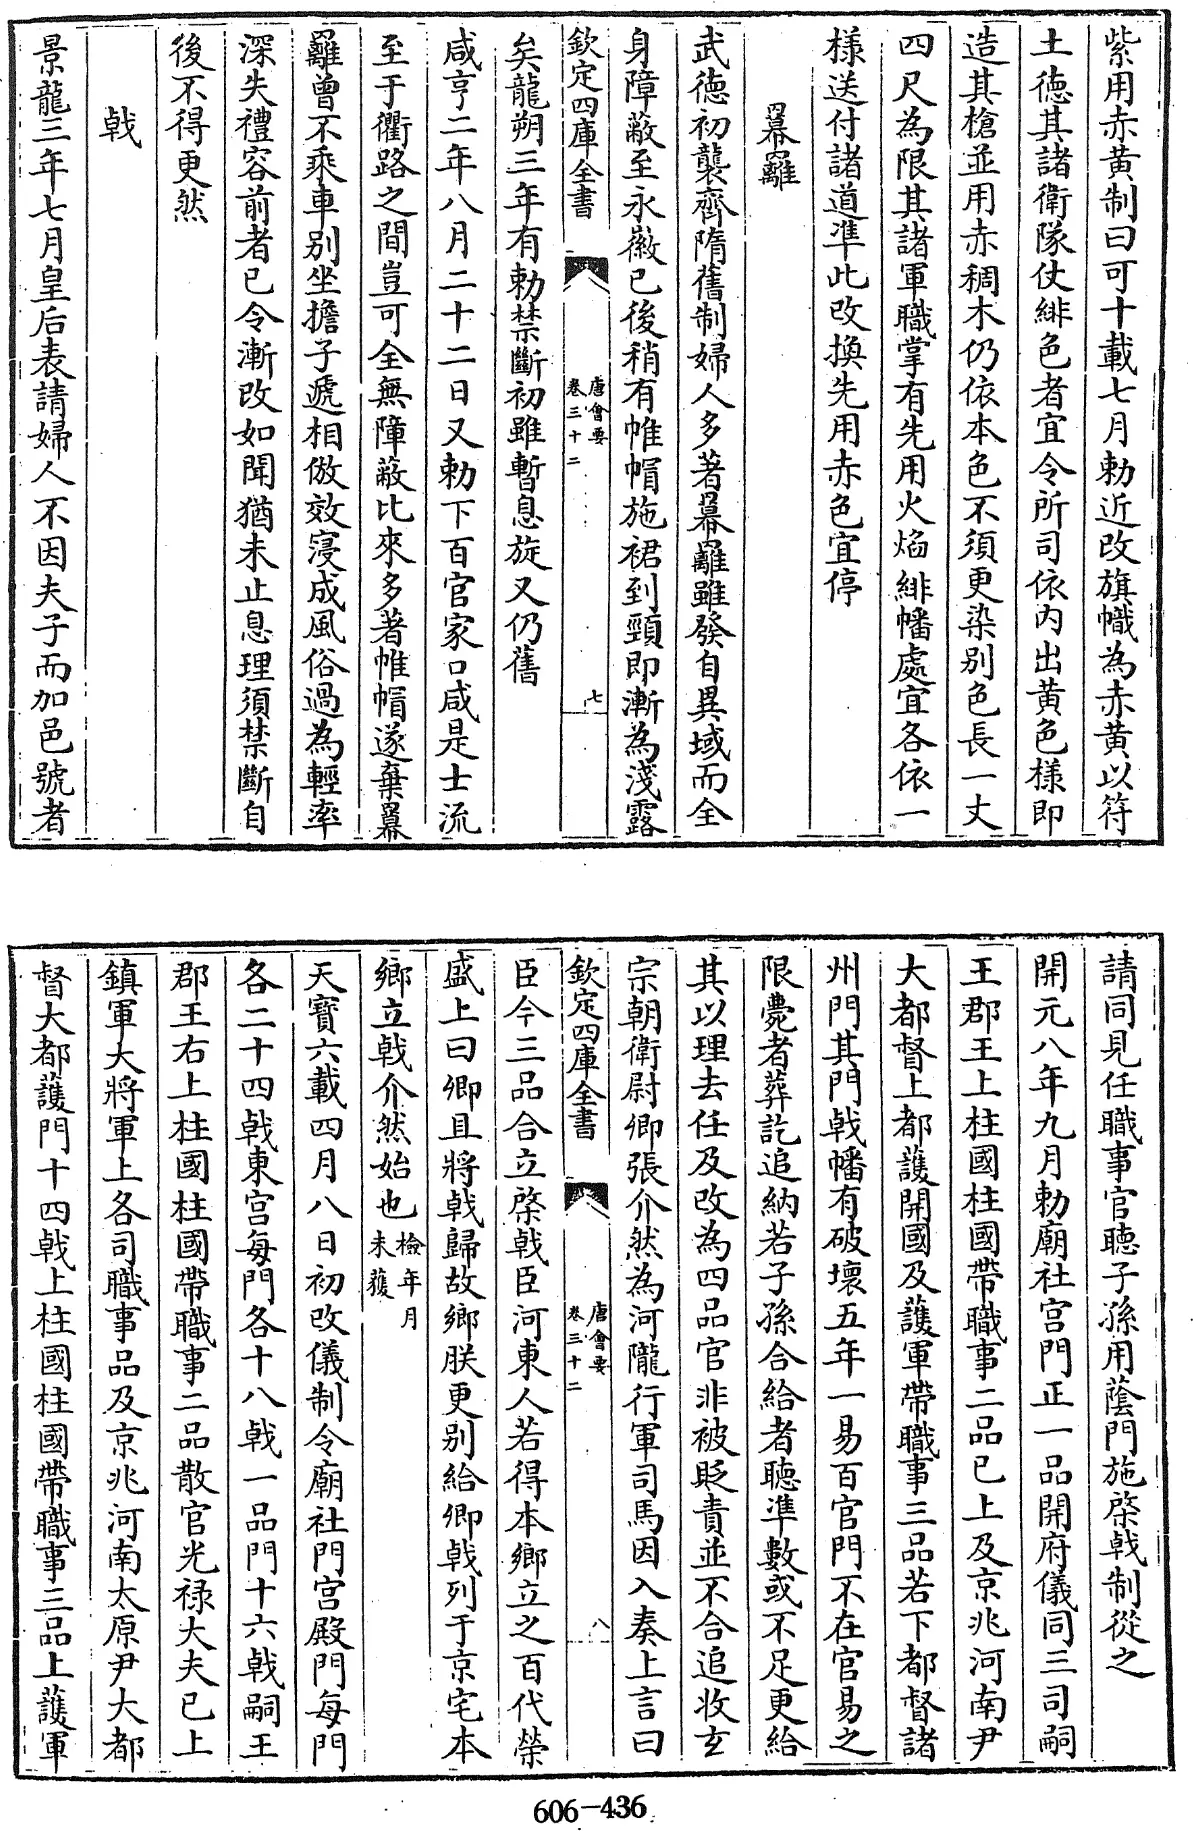 紫用赤黄制曰可十載七月勅近改旗幟為赤黄以符
土德其諸衛隊仗緋色者宜令所司依内出黄色樣即
造其槍並用赤稠木仍依本色不須更染别色長一丈
四尺為限其諸軍職掌有先用火焰緋幡處宜各依一
樣送付諸道準此改換先用赤色宜停
羃䍦
武德初襲齊隋舊制婦人多著羃䍦雖發自異域而全
身障蔽至永徽已後稍有帷帽施裙到頸即漸為淺露
欽定四庫全書
唐會要
卷三十二
七
矣龍朔三年有勅禁斷初雖暫息旋又仍舊
咸亨二年八月二十二日又勅下百官家口咸是士流
至于衢路之間豈可全無障蔽比來多著帷帽遂棄羃
䍦曾不乘車别坐擔子遞相倣效寖成風俗過為輕率
深失禮容前者已令漸改如聞猶未止息理須禁斷自
後不得更然
戟
景龍三年七月皇后表請婦人不因夫子而加邑號者
請同見任職事官聽子孫用䕃門施棨戟制從之
開元八年九月勅廟社宫門正一品開府儀同三司嗣
王郡王上柱國柱國帶職事二品已上及京兆河南尹
大都督上都護開國及護軍帶職事三品若下都督諸
州門其門戟幡有破壞五年一易百官門不在官易之
限薨者葬訖追納若子孫合給者聽準數或不足更給
其以理去任及改為四品官非被貶責並不合追收玄
宗朝衛尉卿張介然為河隴行軍司馬因入奏上言曰
欽定四庫全書
唐會要
卷三十二
八
臣今三品合立棨戟臣河東人若得本鄉立之百代榮
盛上曰卿且將戟歸故鄉朕更别給卿戟列于京宅本
鄉立戟介然始也檢年月未獲
天寶六載四月八日初改儀制令廟社門宫殿門每門
各二十四戟東宫每門各十八戟一品門十六戟嗣王
郡王右上柱國柱國帶職事二品散官光禄大夫已上
鎮軍大將軍上各司職事品及京兆河南太原尹大都
督大都護門十四戟上柱國柱國帶職事三品上護軍
606-436